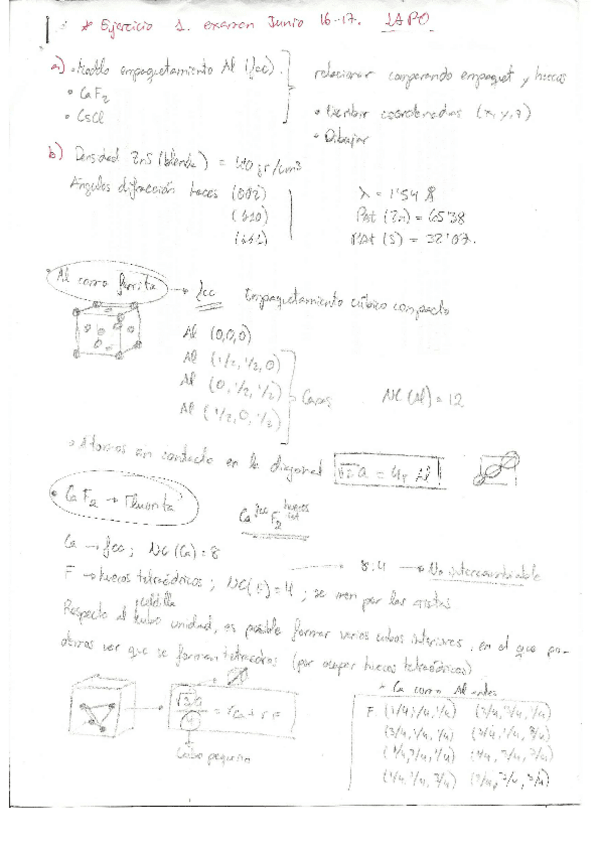 * Ejercicio 1. examen Junio 16-17. 1APO
a) • Modelo empaquetamiento Al (fcc).
• CaF2
• CsCl
relacionar comparando empaquet y huecos
• Escribir coordenadas (x,y,z)
• Dibujar
b) Densidad ZnS (blenda) = gr/cm3
Ángulos difracción haces (002)
λ = 1'54 Å
PAt (Zn) = 65'38
PAt (S) = 32'07.
Al como → fcc Empaquetamiento cúbico compacto
Al (0,0,0)
Al (1/2, 1/2, 0)
Al (0, 1/2, 1/2)
Al (1/2, 0, 1/2)
Caras
NC (Al) = 12
• Átomos en contacto en la diagonal √2 a = 4r Al!
• CaF2 → Fluorita
Ca fcc F2 huecos tet
Ca → fcc; NC (Ca) = 8
F → huecos tetraédricos; NC( )=4; se unen por las aristas
8:4 → No intercambiable
Respecto al cubo unidad, es posible formar varios cubos interiores, en el que po-
demos ver que se forman tetraedros (por ocupar huecos tetraédricos)
celdilla
• Ca como Al antes
= rCa + r F
Cubo pequeño
F (1/4, 1/4, 1/4)
(3/4, 1/4, 1/4)